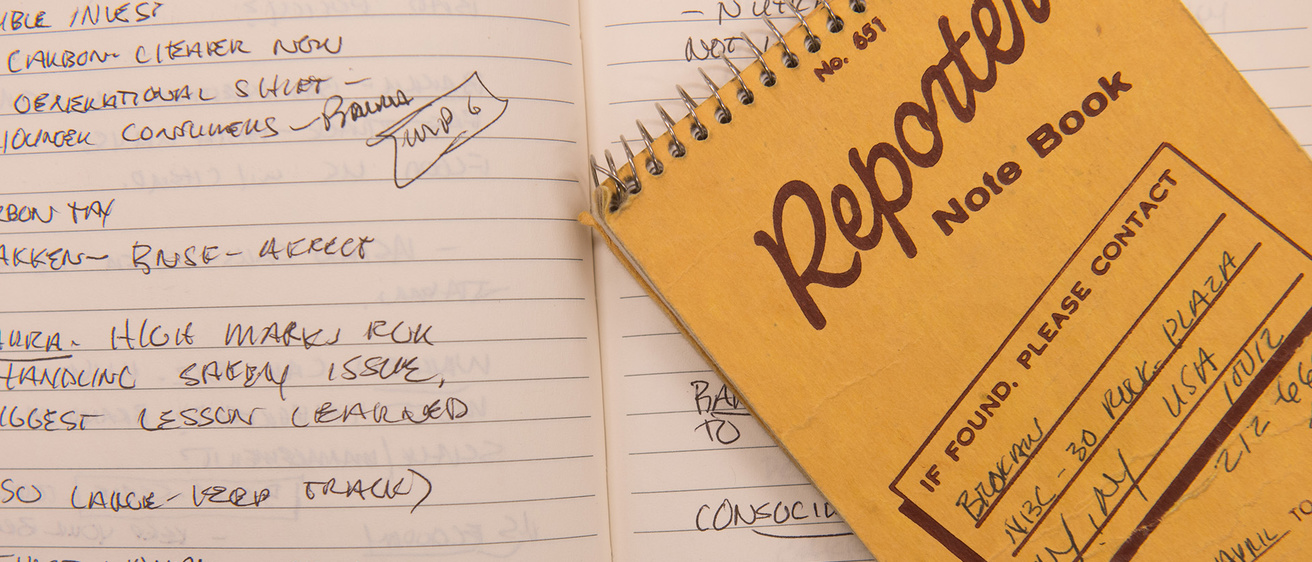 IBLE INVEST
CARBON- CHEAPER NOW
GENERATIONAL SHIFT -
YOUNGER CONSUMERS -
RBON TAX
AKKEN- BNSF- AFFECT
AURA- HIGH MARKS FOR
HANDLING SAFETY ISSUE,
IGGEST LESSON LEARNED
SO LARGE- KEEP TRACK)
NOT
BA
TO
CONSOCI
No. 651
Reporter
Note Book
IF FOUND, PLEASE CONTACT
BROKAW
NBC - 30 ROCK. PLAZA
NY, NY USA 10012
212 66
APRIL TO